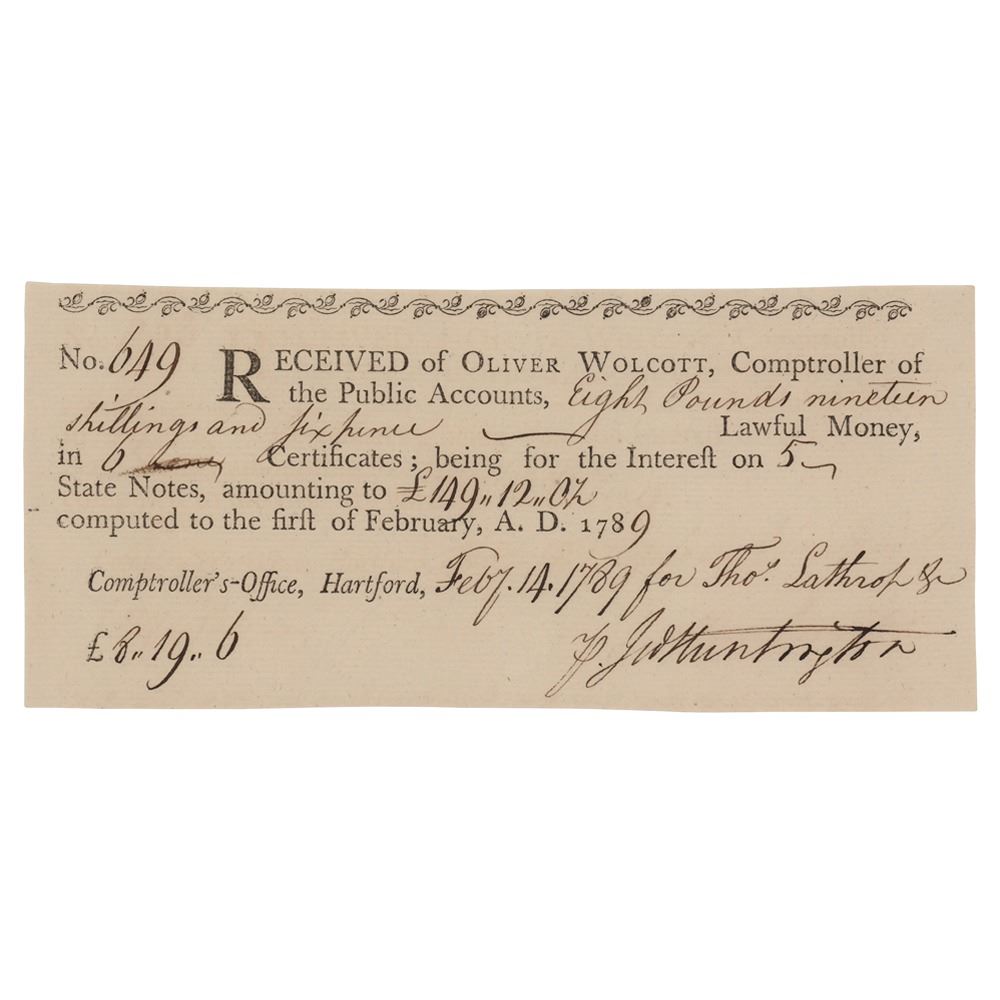 No. 649 RECEIVED of OLIVER WOLCOTT, Comptroller of
the Public Accounts, Eight Pounds nineteen
shillings and six pence Lawful Money,
in 6 Certificates; being for the Intereſt on 5
State Notes, amounting to £149,, 12,, 0½
computed to the firſt of February, A. D. 1789
Comptroller's-Office, Hartford, Feby. 14. 1789 for Thos. Lathrop &c
£ 8,, 19,, 6 Huntington